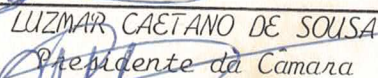 LUZMAR CAETANO DE SOUSA
Presidente da Câmara